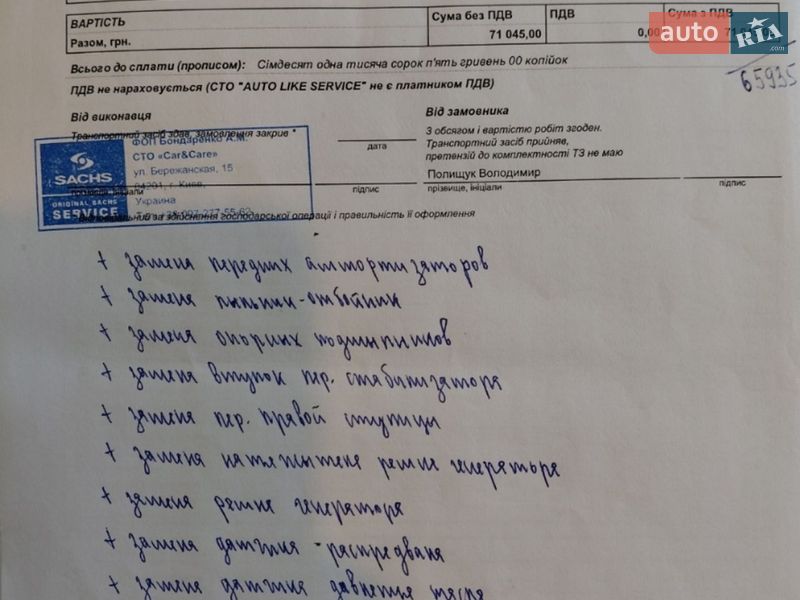 ВАРТІСТЬ Сума без ПДВ ПДВ Сума з ПДВ
Разом, грн. 71 045,00 0,00
auto RIA .com
65935
Всього до сплати (прописом): Сімдесят одна тисяча сорок п'ять гривень 00 копійок
ПДВ не нараховується (СТО "AUTO LIKE SERVICE" не є платником ПДВ)
Від виконавця
Від замовника
Транспортний засіб здав, замовлення закрив
дата
З обсягом і вартістю робіт згоден.
Транспортний засіб прийняв,
претензій до комплектності ТЗ не маю
Полищук Володимир
підпис
прізвище, ініціали
підпис
SACHS
ORIGINAL SACHS
SERVICE
ФОП Бондаренко А.М.
СТО «Car&Care»
ул. Бережанская, 15
04201, г. Киев,
Украина
за здійснення господарської операції і правильність її оформлення
+ замена передних аммортизаторов
+ замена пыльник-отбойник
+ замена опорных подшыпников
+ замена втулок пер. стабилизатора
+ замена пер. правой ступицы
+ замена натежытеля ремня генератора
+ замена ремня генератора
+ замена датчика распредвала
+ замена датчика давления масла